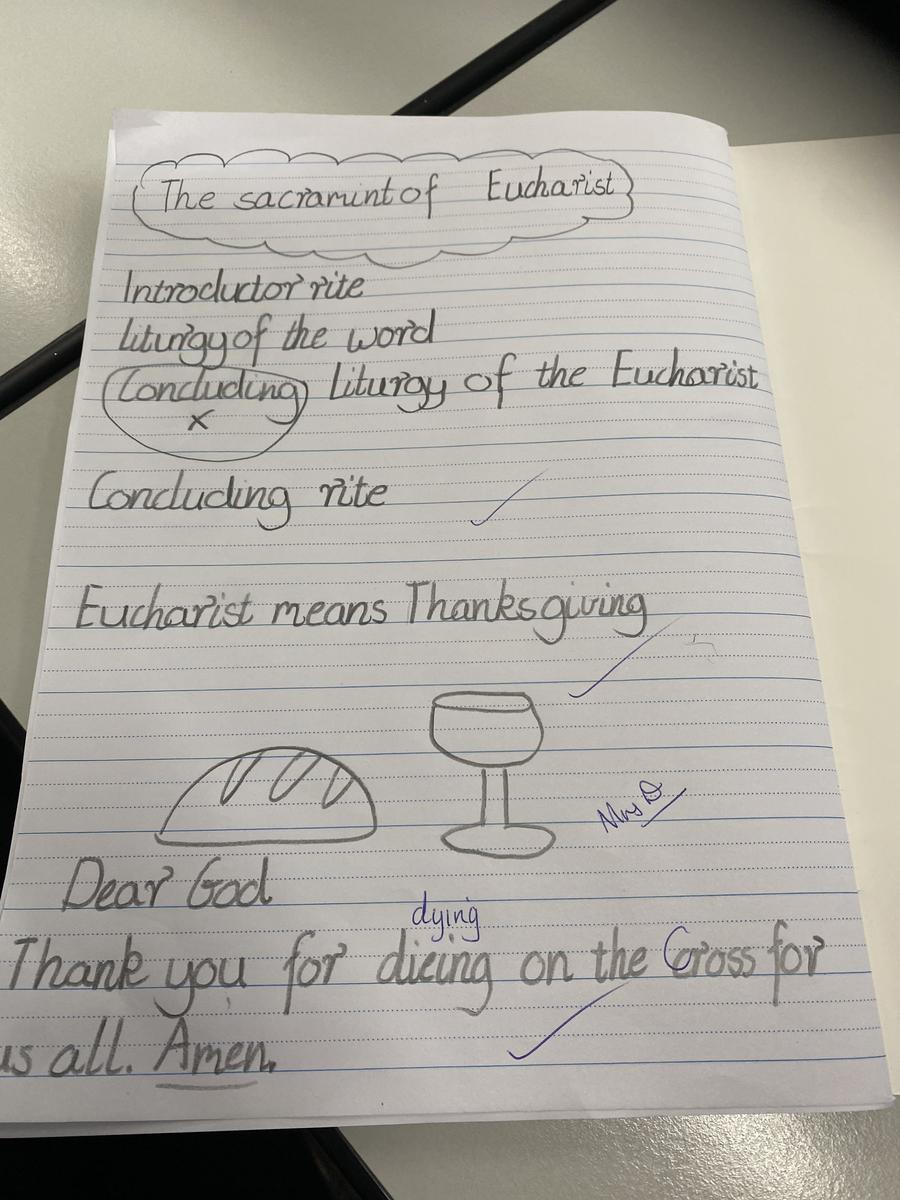 The sacramint of Eucharist
Introductor rite
liturgy of the word
Concluding Liturgy of the Eucharist
x
Concluding rite
Eucharist means Thanksgiving
Mrs D
Dear God
dying
Thank you for dieing on the Cross for
us all. Amen.